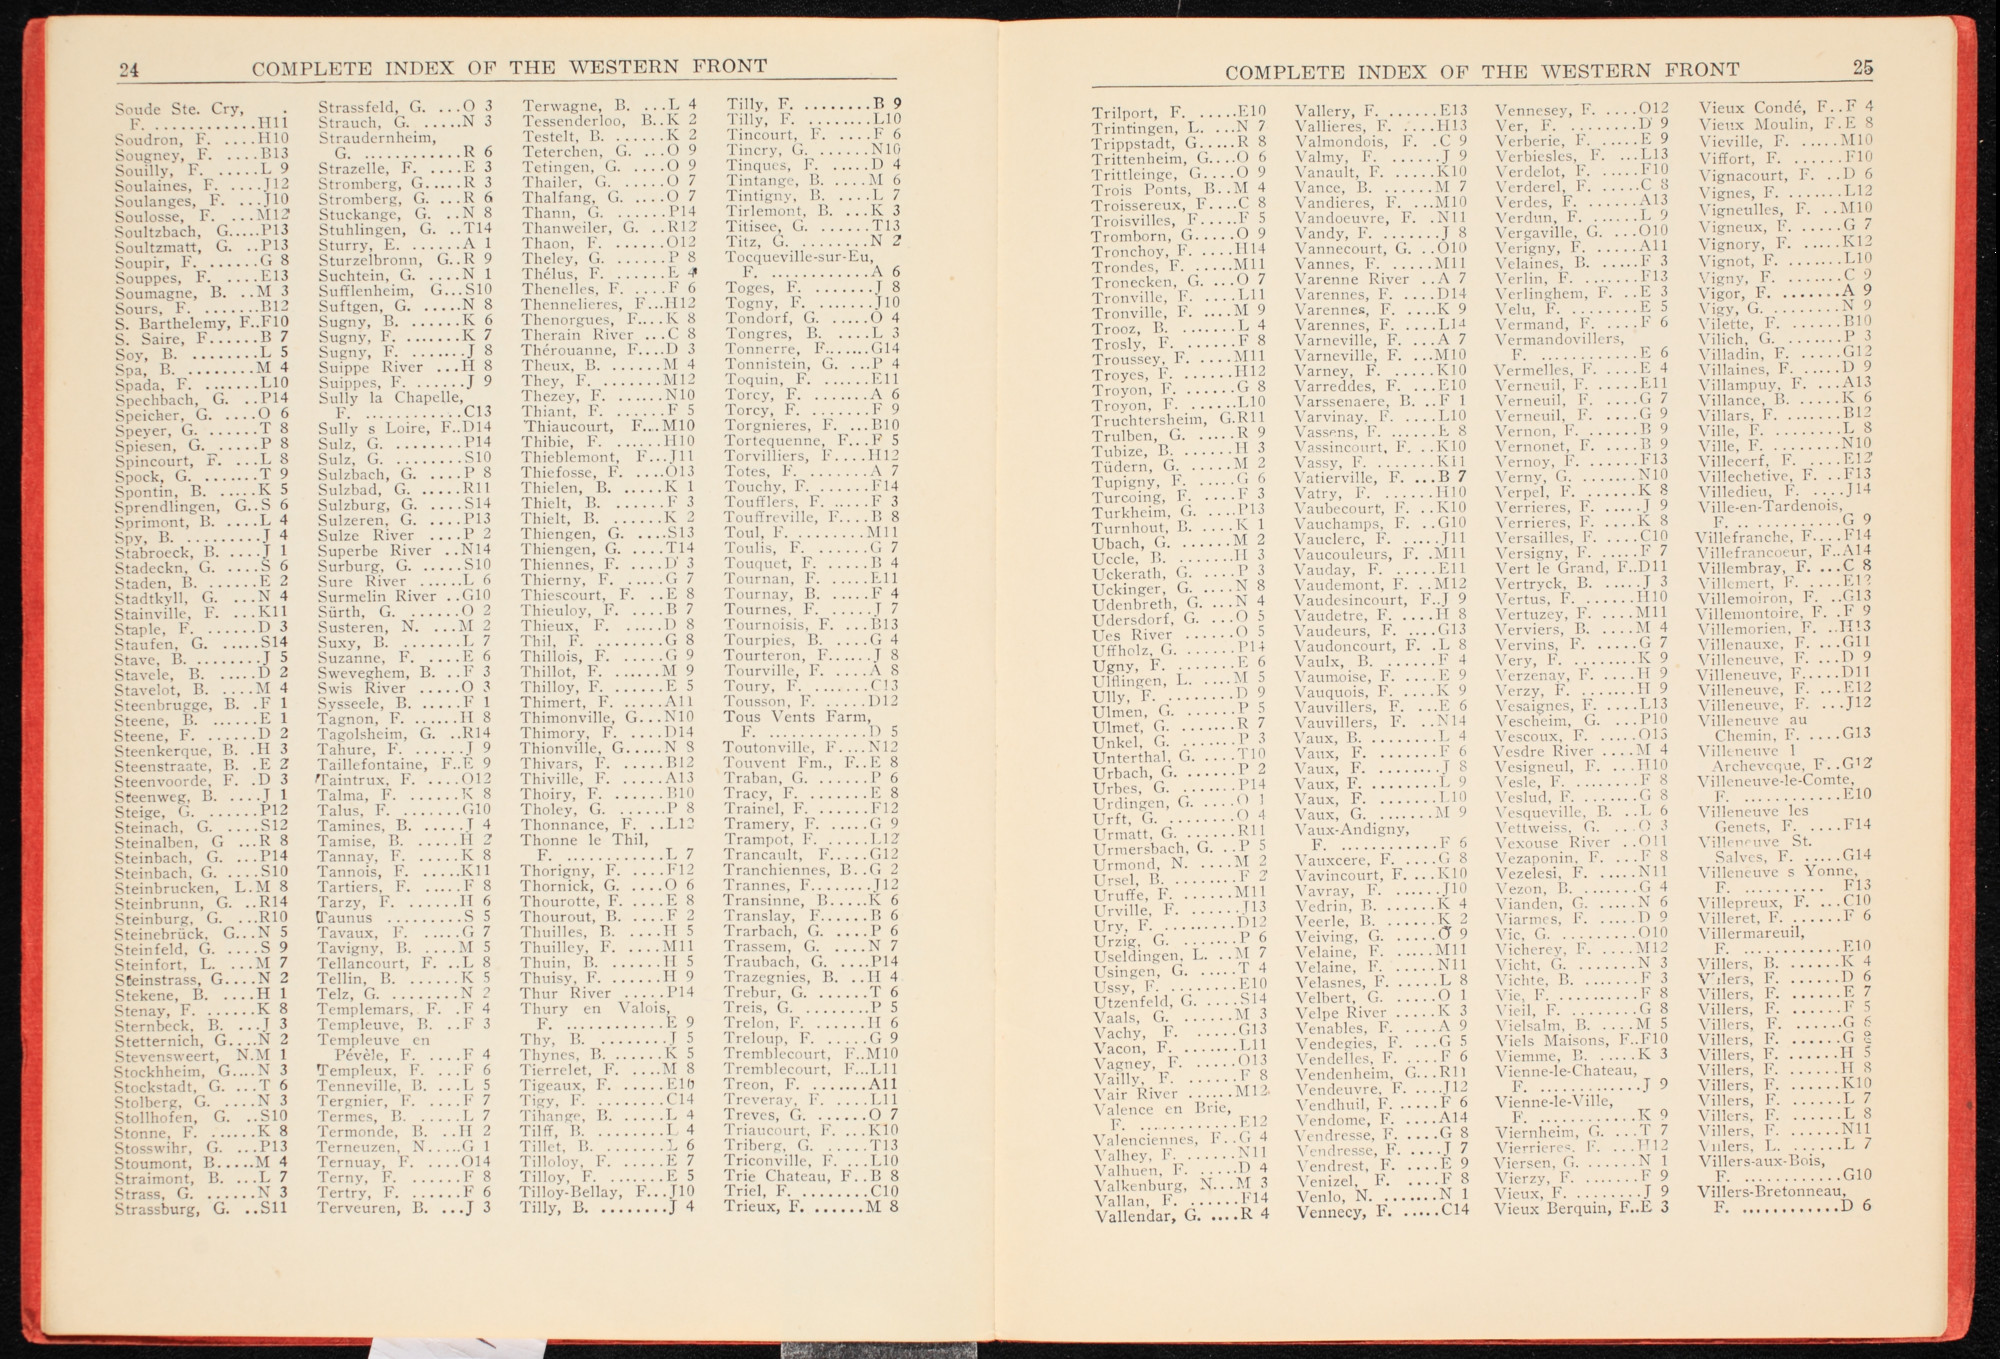 24 COMPLETE INDEX OF THE WESTERN FRONT
Soude Ste. Cry,
F. ............H11
Soudron, F. ....H10
Sougney, F. ....B13
Souilly, F. ......L 9
Soulaines, F. ....J12
Soulanges, F. ...J10
Soulosse, F. ...M12
Soultzbach, G.....P13
Soultzmatt, G. ..P13
Soupir, F. .......G 8
Souppes, F. .....E13
Soumagne, B. ..M 3
Sours, F. ........B12
S. Barthelemy, F..F10
S. Saire, F......B 7
Soy, B. .........L 5
Spa, B. .........M 4
Spada, F. .......L10
Spechbach, G. ..P14
Speicher, G. ....O 6
Speyer, G. .......T 8
Spiesen, G. ......P 8
Spincourt, F. ...L 8
Spock, G. ........T 9
Spontin, B. .....K 5
Sprendlingen, G..S 6
Sprimont, B. ....L 4
Spy, B. .........J 4
Stabroeck, B. ....J 1
Stadeckn, G. ....S 6
Staden, B. .......E 2
Stadtkyll, G. ...N 4
Stainville, F. ...K11
Staple, F. .......D 3
Staufen, G. .....S14
Stave, B. ........J 5
Stavele, B. .....D 2
Stavelot, B. ....M 4
Steenbrugge, B. .F 1
Steene, B. ......E 1
Steene, F. ......D 2
Steenkerque, B. .H 3
Steenstraate, B. .E 2
Steenvoorde, F. .D 3
Steenweg, B. ....J 1
Steige, G. .......P12
Steinach, G. ....S12
Steinalben, G ...R 8
Steinbach, G. ...P14
Steinbach, G. ....S10
Steinbrucken, L.M 8
Steinbrunn, G. ..R14
Steinburg, G. ...R10
Steinebrück, G...N 5
Steinfeld, G. ....S 9
Steinfort, L. ...M 7
Steinstrass, G....N 2
Stekene, B. ....H 1
Stenay, F. .......K 8
Sternbeck, B. ...J 3
Stetternich, G....N 2
Stevensweert, N.M 1
Stockhheim, G....N 3
Stockstadt, G. ...T 6
Stolberg, G. ....N 3
Stollhofen, G. ..S10
Stonne, F. ......K 8
Stosswihr, G. ...P13
Stoumont, B.....M 4
Straimont, B. ...L 7
Strass, G. .......N 3
Strassburg, G. ..S11
Strassfeld, G. ...O 3
Strauch, G. .....N 3
Straudernheim,
G. ............R 6
Strazelle, F. ....E 3
Stromberg, G.....R 3
Stromberg, G. ...R 6
Stuckange, G. ..N 8
Stuhlingen, G. ..T14
Sturry, E. .......A 1
Sturzelbronn, G..R 9
Suchtein, G. ....N 1
Sufflenheim, G...S10
Suftgen, G. .....N 8
Sugny, B. .......K 6
Sugny, F. .......K 7
Sugny, F. ........J 8
Suippe River ...H 8
Suippes, F. .......J 9
Sully la Chapelle,
F. ............C13
Sully s Loire, F..D14
Sulz, G. .........P14
Sulz, G. .........S10
Sulzbach, G. ....P 8
Sulzbad, G. ......R11
Sulzburg, G. ....S14
Sulzeren, G. ....P13
Sulze River ....P 2
Superbe River ..N14
Surburg, G. .....S10
Sure River ......L 6
Surmelin River ..G10
Sürth, G. .......O 2
Susteren, N. ...M 2
Suxy, B. ........L 7
Suzanne, F. .....E 6
Sweveghem, B. ...F 3
Swis River .....O 3
Sysseele, B. .....F 1
Tagnon, F. ......H 8
Tagolsheim, G. ..R14
Tahure, F. .......J 9
Taillefontaine, F..E 9
Taintrux, F. ....O12
Talma, F. .......K 8
Talus, F. .......G10
Tamines, B. .....J 4
Tamise, B. ......H 2
Tannay, F. ......K 8
Tannois, F. .....K11
Tartiers, F. .....F 8
Tarzy, F. .......H 6
Taunus .........S 5
Tavaux, F. .....G 7
Tavigny, B. ....M 5
Tellancourt, F. ..L 8
Tellin, B. .......K 5
Telz, G. .........N 2
Templemars, F. .F 4
Templeuve, B. ..F 3
Templeuve en
Pévèle, F. ....F 4
Templeux, F. ....F 6
Tenneville, B. ...L 5
Tergnier, F. ....F 7
Termes, B. ......L 7
Termonde, B. ..H 2
Terneuzen, N. ....G 1
Ternuay, F. ....O14
Terny, F. .......F 8
Tertry, F. .......F 6
Terveuren, B. ...J 3
Terwagne, B. ...L 4
Tessenderloo, B..K 2
Testelt, B. .......K 2
Teterchen, G. ...O 9
Tetingen, G. ....O 9
Thailer, G. ......O 7
Thalfang, G. ....O 7
Thann, G. .......P14
Thanweiler, G. ..R12
Thaon, F. .......O12
Theley, G. .......P 8
Thélus, F. .......E 4
Thenelles, F. ....F 6
Thennelieres, F...H12
Thenorgues, F....K 8
Therain River ...C 8
Thérouanne, F....D 3
Theux, B. .......M 4
They, F. ........M12
Thezey, F. ......N10
Thiant, F. .......F 5
Thiaucourt, F...M10
Thibie, F. .......H10
Thieblemont, F...J11
Thiefosse, F. ....O13
Thielen, B. ......K 1
Thielt, B. ........F 3
Thielt, B. .......K 2
Thiengen, G. ....S13
Thiengen, G. ....T14
Thiennes, F. ....D 3
Thierny, F. .....G 7
Thiescourt, F. ..E 8
Thieuloy, F. ....B 7
Thieux, F. ......D 8
Thil, F. .........G 8
Thillois, F. .....G 9
Thillot, F. ......M 9
Thilloy, F. .......E 5
Thimert, F. .....A11
Thimonville, G...N10
Thimory, F. ....D14
Thionville, G.....N 8
Thivars, F. ......B12
Thiville, F. ......A13
Thoiry, F. .......B10
Tholey, G. .......P 8
Thonnance, F. ...L12
Thonne le Thil,
F. .............L 7
Thorigny, F. .....F12
Thornick, G. ....O 6
Thourotte, F. ....E 8
Thourout, B. ....F 2
Thuilles, B. .....H 5
Thuilley, F. .....M11
Thuin, B. .......H 5
Thuisy, F. .......H 9
Thur River .....P14
Thury en Valois,
F. .............E 9
Thy, B. .........J 5
Thynes, B. ......K 5
Tierrelet, F. ....M 8
Tigeaux, F. ......E10
Tigy, F. .........C14
Tihange, B. ......L 4
Tilff, B. .........L 4
Tillet, B. ........L 6
Tilloloy, F. ......E 7
Tilloy, F. ........E 5
Tilloy-Bellay, F...J10
Tilly, B. .........J 4
Tilly, F. .........B 9
Tilly, F. ........L10
Tincourt, F. ....F 6
Tincry, G. ......N10
Tinques, F. .....D 4
Tintange, B. ....M 6
Tintigny, B. ....L 7
Tirlemont, B. ...K 3
Titisee, G. ......T13
Titz, G. .........N 2
Tocqueville-sur-Eu,
F. ............A 6
Toges, F. ........J 8
Togny, F. ........J10
Tondorf, G. .....O 4
Tongres, B. ....L 3
Tonnerre, F......G14
Tonnistein, G. ...P 4
Toquin, F. ......E11
Torcy, F. .......A 6
Torcy, F. ........F 9
Torgnieres, F. ...B10
Tortequenne, F...F 5
Torvilliers, F....H12
Totes, F. ........A 7
Touchy, F. .......F14
Toufflers, F. .....F 3
Touffreville, F....B 8
Toul, F. ........M11
Toulis, F. .......G 7
Touquet, F. .....B 4
Tournan, F. .....E11
Tournay, B. .....F 4
Tournes, F. ......J 7
Tournoisis, F. ...B13
Tourpies, B. ....G 4
Tourteron, F......J 8
Tourville, F. ....A 8
Toury, F. .......C13
Tousson, F. .....D12
Tous Vents Farm,
F. ............D 5
Toutonville, F....N12
Touvent Fm., F..E 8
Traban, G. ......P 6
Tracy, F. ........E 8
Trainel, F. ......F12
Tramery, F. .....G 9
Trampot, F. .....L12
Trancault, F.....G12
Tranchiennes, B..G 2
Trannes, F........J12
Transinne, B.....K 6
Translay, F......B 6
Trarbach, G. ....P 6
Trassem, G. ....N 7
Traubach, G. ....P14
Trazegnies, B. ..H 4
Trebur, G. .......T 6
Treis, G. ........P 5
Trelon, F. .......H 6
Treloup, F. .....G 9
Tremblecourt, F..M10
Tremblecourt, F...L11
Treon, F. .......A11
Treveray, F. ....L11
Treves, G. ......O 7
Triaucourt, F. ...K10
Triberg, G. ......T13
Triconville, F. ...L10
Trie Chateau, F..B 8
Triel, F. ........C10
Trieux, F. .......M 8
COMPLETE INDEX OF THE WESTERN FRONT 25
Trilport, F. ......E10
Trintingen, L. ...N 7
Trippstadt, G.....R 8
Trittenheim, G....O 6
Trittleinge, G....O 9
Trois Ponts, B..M 4
Troissereux, F....C 8
Troisvilles, F.....F 5
Tromborn, G.....O 9
Tronchoy, F. ....H14
Trondes, F. .....M11
Tronecken, G. ...O 7
Tronville, F. .....L11
Tronville, F. ....M 9
Trooz, B. ........L 4
Trosly, F. .......F 8
Troussey, F. ....M11
Troyes, F. ......H12
Troyon, F. ......G 8
Troyon, F. ......L10
Truchtersheim, G.R11
Trulben, G. .....R 9
Tubize, B. .......H 3
Tüdern, G. ......M 2
Tupigny, F. .....G 6
Turcoing, F. ....F 3
Turkheim, G. ....P13
Turnhout, B. ....K 1
Ubach, G. .......M 2
Uccle, B. ........H 3
Uckerath, G. ....P 3
Uckinger, G. ....N 8
Udenbreth, G. ...N 4
Udersdorf, G. ...O 5
Ues River ......O 5
Uffholz, G. ......P14
Ugny, F. ........E 6
Ulflingen, L. ....M 5
Ully, F. .........D 9
Ulmen, G. .......P 5
Ulmet, G. .......R 7
Unkel, G. .......P 3
Unterthal, G. ....T10
Urbach, G. ......P 2
Urbes, G. .......P14
Urdingen, G. ....O 1
Urft, G. ........O 4
Urmatt, G. ......R11
Urmersbach, G. ..P 5
Urmond, N. ....M 2
Ursel, B. ........F 2
Uruffe, F. ......M11
Urville, F. .......J13
Ury, F. .........D12
Urzig, G. ........P 6
Useldingen, L. ..M 7
Usingen, G. .....T 4
Ussy, F. ........E10
Utzenfeld, G. ....S14
Vaals, G. .......M 3
Vachy, F. ......G13
Vacon, F. .......L11
Vagney, F. .....O13
Vailly, F. .......F 8
Vair River ......M12
Valence en Brie,
F. ............E12
Valenciennes, F..G 4
Valhey, F. ......N11
Valhuen, F. .....D 4
Valkenburg, N...M 3
Vallan, F. .......F14
Vallendar, G. ....R 4
Vallery, F. .......E13
Vallieres, F. ....H13
Valmondois, F. .C 9
Valmy, F. .......J 9
Vanault, F. .....K10
Vance, B. .......M 7
Vandieres, F. ...M10
Vandoeuvre, F. .N11
Vandy, F. ........J 8
Vannecourt, G. ..O10
Vannes, F. ......M11
Varenne River ..A 7
Varennes, F. ....D14
Varennes, F. ....K 9
Varennes, F. ....L14
Varneville, F. ...A 7
Varneville, F. ...M10
Varney, F. ......K10
Varreddes, F. ...E10
Varssenaere, B. ..F 1
Varvinay, F. .....L10
Vassens, F. ......E 8
Vassincourt, F. ..K10
Vassy, F. .......K11
Vatierville, F. ...B 7
Vatry, F. .......H10
Vaubecourt, F. ..K10
Vauchamps, F. ..G10
Vauclerc, F. ......J11
Vaucouleurs, F. .M11
Vauday, F. ......E11
Vaudemont, F. ..M12
Vaudesincourt, F..J 9
Vaudetre, F. ....H 8
Vaudeurs, F. ....G13
Vaudoncourt, F. .L 8
Vaulx, B. ........F 4
Vaumoise, F. ....E 9
Vauquois, F. ....K 9
Vauvillers, F. ...E 6
Vauvillers, F. ..N14
Vaux, B. ........L 4
Vaux, F. ........F 6
Vaux, F. .........J 8
Vaux, F. .........L 9
Vaux, F. ........L10
Vaux, G. ........M 9
Vaux-Andigny,
F. ............F 6
Vauxcere, F. ....G 8
Vavincourt, F. ...K10
Vavray, F. .......J10
Vedrin, B. .......K 4
Veerle, B. .......K 2
Veiving, G. .....O 9
Velaine, F. .....M11
Velaine, F. .....N11
Velasnes, F. .....L 8
Velbert, G. ......O 1
Velpe River .....K 3
Venables, F. ....A 9
Vendegies, F. ...G 5
Vendelles, F. ....F 6
Vendenheim, G...R11
Vendeuvre, F. ....J12
Vendhuil, F. .....F 6
Vendome, F. ....A14
Vendresse, F. ....G 8
Vendresse, F. ....J 7
Vendrest, F. ....E 9
Venizel, F. ....F 8
Venlo, N. ........N 1
Vennecy, F. .....C14
Vennesey, F. ....O12
Ver, F. .........D 9
Verberie, F. .....E 9
Verbiesles, F. ...L13
Verdelot, F. .....F10
Verderel, F. .....C 8
Verdes, F. ......A13
Verdun, F. .......L 9
Vergaville, G. ...O10
Verigny, F. .....A11
Velaines, B. .....F 3
Verlin, F. .......F13
Verlinghem, F. ..E 3
Velu, F. ........E 5
Vermand, F. ....F 6
Vermandovillers,
F. ............E 6
Vermelles, F. ....E 4
Verneuil, F. .....E11
Verneuil, F. .....G 7
Verneuil, F. .....G 9
Vernon, F. ......B 9
Vernonet, F. ....B 9
Vernoy, F. ......F13
Verny, G. ......N10
Verpel, F. .......K 8
Verrieres, F. .....J 9
Verrieres, F. ....K 8
Versailles, F. ....C10
Versigny, F. .....F 7
Vert le Grand, F..D11
Vertryck, B. .....J 3
Vertus, F. .......H10
Vertuzey, F. ....M11
Verviers, B. ....M 4
Vervins, F. .....G 7
Very, F. .........K 9
Verzenay, F. ....H 9
Verzy, F. .......H 9
Vesaignes, F. ....L13
Vescheim, G. ...P10
Vescoux, F. .....O13
Vesdre River ....M 4
Vesigneul, F. ...H10
Vesle, F. ........F 8
Veslud, F. ......G 8
Vesqueville, B. ..L 6
Vettweiss, G. ...O 3
Vexouse River ..O11
Vezaponin, F. ...F 8
Vezelesi, F. .....N11
Vezon, B. ......G 4
Vianden, G. .....N 6
Viarmes, F. .....D 9
Vic, G. ........O10
Vicherey, F. ....M12
Vicht, G. .......N 3
Vichte, B. .......F 3
Vie, F. ..........F 8
Vieil, F. ........G 8
Vielsalm, B. ....M 5
Viels Maisons, F..F10
Viemme, B. .....K 3
Vienne-le-Chateau,
F. ............J 9
Vienne-le-Ville,
F. ............K 9
Viernheim, G. ...T 7
Vierrieres, F. ...H12
Viersen, G. ......N 1
Vierzy, F. .......F 9
Vieux, F. ........J 9
Vieux Berquin, F..E 3
Vieux Condé, F..F 4
Vieux Moulin, F.E 8
Vieville, F. .....M10
Viffort, F. .......F10
Vignacourt, F. ..D 6
Vignes, F. .......L12
Vigneulles, F. ..M10
Vigneux, F. .....G 7
Vignory, F. .....K12
Vignot, F. .......L10
Vigny, F. .......C 9
Vigor, F. ........A 9
Vigy, G. ........N 9
Vilette, F. ......B10
Vilich, G. .......P 3
Villadin, F. .....G12
Villaines, F. .....D 9
Villampuy, F. ....A13
Villance, B. .....K 6
Villars, F. .......B12
Ville, F. .........L 8
Ville, F. ........N10
Villecerf, F. ....E12
Villechetive, F. ..F13
Villedieu, F. .....J14
Ville-en-Tardenois,
F. ............G 9
Villefranche, F....F14
Villefrancoeur, F..A14
Villembray, F. ...C 8
Villemert, F. .....E12
Villemoiron, F. ..G13
Villemontoire, F. .F 9
Villemorien, F. ..H13
Villenauxe, F. ...G11
Villeneuve, F. ...D 9
Villeneuve, F.....D11
Villeneuve, F. ...E12
Villeneuve, F. ...J12
Villeneuve au
Chemin, F. ....G13
Villeneuve l
Archeveque, F..G12
Villeneuve-le-Comte,
F. ............E10
Villeneuve les
Genets, F. .....F14
Villeneuve St.
Salves, F. .....G14
Villeneuve s Yonne,
F. ........... F13
Villepreux, F. ...C10
Villeret, F. ......F 6
Villermareuil,
F. ............E10
Villers, B. .......K 4
Villers, F. .......D 6
Villers, F. .......E 7
Villers, F. .......F 5
Villers, F. .......G 6
Villers, F. .......G
Villers, F. .......H 5
Villers, F. .......H 8
Villers, F. .......K10
Villers, F. .......L 7
Villers, F. .......L 8
Villers, F. .......N11
Villers, L. .......L 7
Villers-aux-Bois,
F. ............G10
Villers-Bretonneau,
F. ............D 6